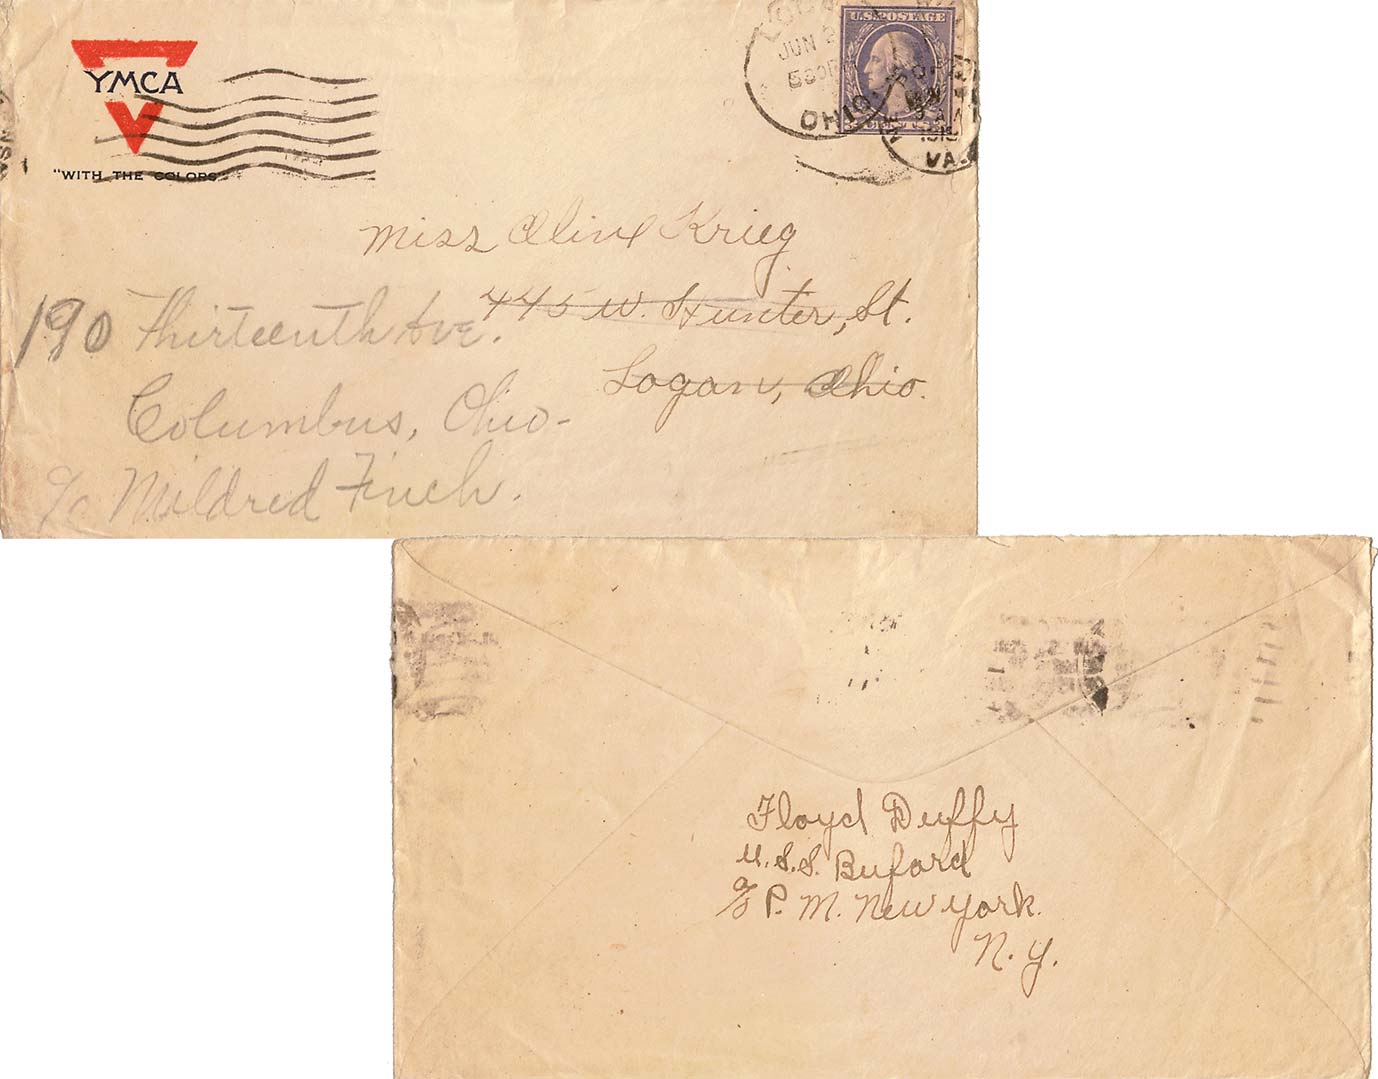 YMCA
"WITH THE COLORS"
U.S. POSTAGE
JUN
OHIO
VA.
Miss Aline Krieg
445 W. Hunter, St.
Logan, Ohio.
190 Thirteenth Ave.
Columbus, Ohio-
c/o Mildred Finch.
Floyd Duffy
U.S.S. Buford
c/o P. M. New York.
N. Y.